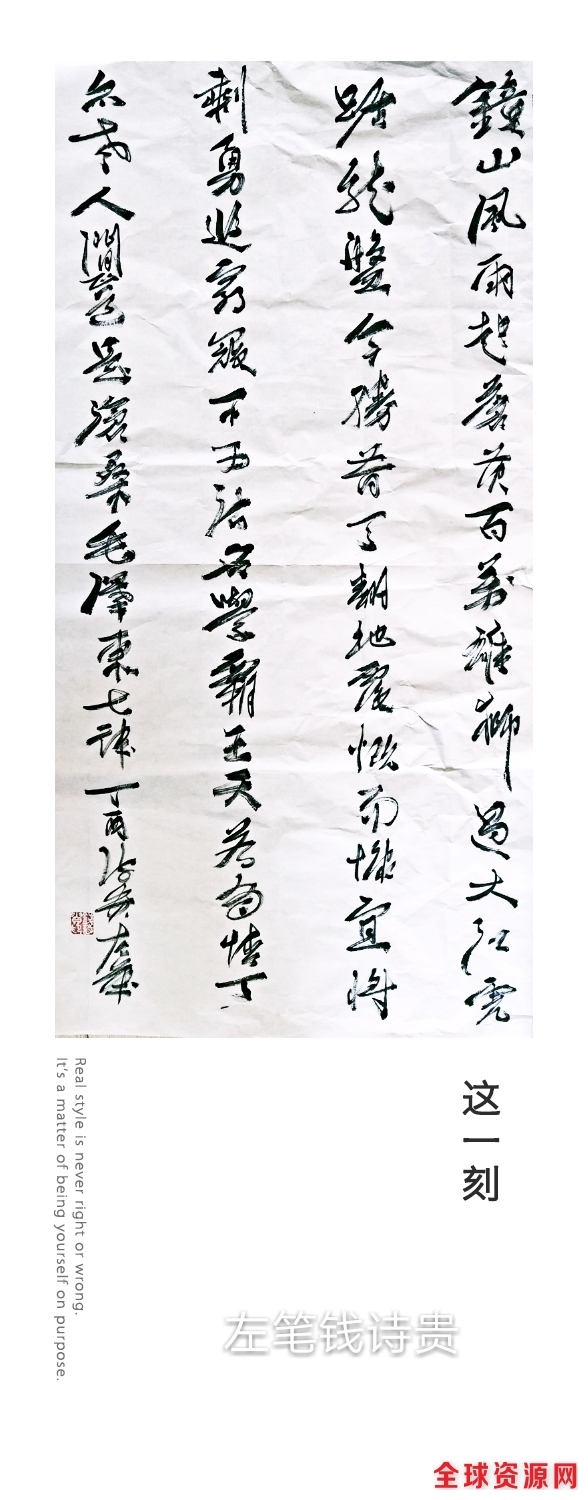 鐘山風雨起蒼黄百万雄獅過大江虎
踞龍盤今勝昔天翻地覆慨而慷宜將
剩勇追窮寇不可沽名學霸王天若有情天
亦老人間正道是滄桑毛澤東七律丁酉詩貴左筆
这一刻
Real style is never right or wrong.
It's a matter of being yourself on purpose.
左笔钱诗贵
全球资源网